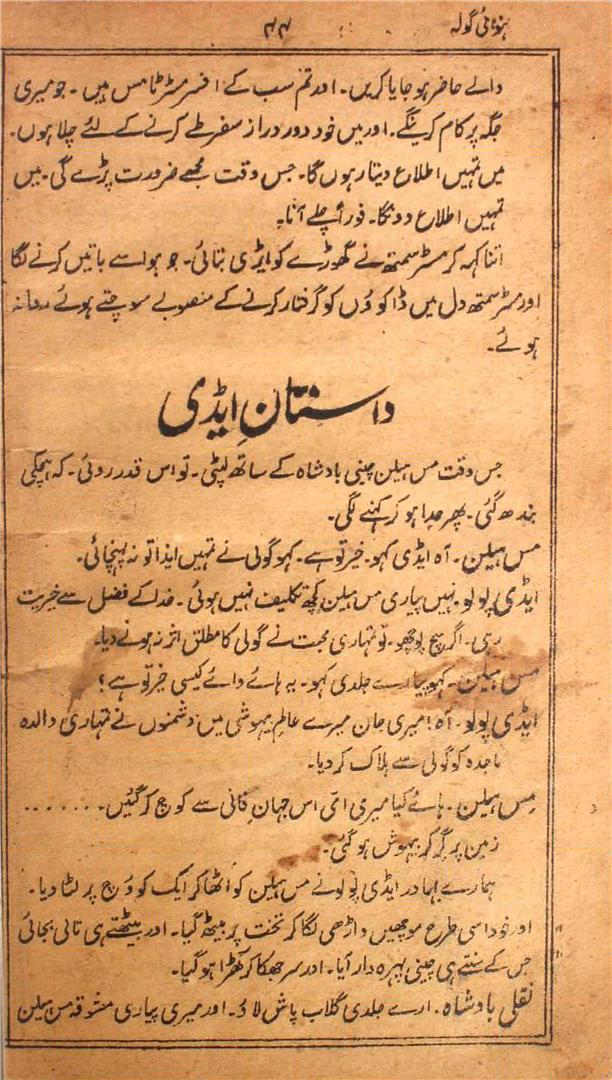 ہوائی گولہ
۴۴
والے حاضر ہو جایا کریں۔ اور تم سب کے افسر مسٹر ٹامس ہیں۔ جو میری
جگہ پر کام کرینگے۔ اور میں خود دور دراز سفر طے کرنے کے لئے چلا ہوں۔
میں تمہیں اطلاع دیتا رہوں گا۔ جس وقت مجھے ضرورت پڑے گی۔ میں
تمہیں اطلاع دونگا۔ فوراً چلے آنا۔
اتنا کہہ کر مسٹر سمتھ نے گھوڑے کو ایڑی بتائی۔ جو ہوا سے باتیں کرنے لگا
اور مسٹر سمتھ دل میں ڈاکوؤں کو گرفتار کرنے کے منصوبے سوچتے ہوئے روانہ
ہوئے۔
داستانِ ایڈی
جس وقت مس ہیلن چینی بادشاہ کے ساتھ لپٹی۔ تو اس قدر روئی۔ کہ ہچکی
بندھ گئی۔ پھر جدا ہو کر کہنے لگی۔
مس ہیلن۔ آہ ایڈی کہو۔ خیر تو ہے۔ کہو گولی نے تمہیں ایذا تو نہ پہنچائی۔
ایڈی پولو۔ نہیں پیاری مس ہیلن کچھ تکلیف نہیں ہوئی۔ خدا کے فضل سے خیریت
رہی۔ اگر سچ پوچھو۔ تو تمہاری محبت نے گولی کا مطلق اثر نہ ہونے دیا۔
مس ہیلن۔ کہو پیارے جلدی کہو۔ یہ ہائے وائے کیسی خیر تو ہے؟
ایڈی پولو۔ آہ! میری جان میرے عالم بیہوشی میں دشمنوں نے تمہاری والدہ
ماجدہ کو گولی سے ہلاک کر دیا۔
مس ہیلن۔ ہائے کیا میری امی اس جہانِ فانی سے کوچ کر گئیں۔......
زمین پر گر کر بیہوش ہو گئی۔
ہمارے بہادر ایڈی پولو نے مس ہیلن کو اٹھا کر ایک کوچ پر لٹا دیا۔
اور خود اسی طرح موچھیں داڑھی لگا کر تخت پر بیٹھ گیا۔ اور بیٹھتے ہی تالی بجائی
جس کے سنتے ہی چینی پہرہ دار آیا۔ اور سر جھکا کر کھڑا ہو گیا۔
نقلی بادشاہ۔ ارے جلدی گلاب پاش لاؤ۔ اور میری پیاری معشوقہ مس ہیلن